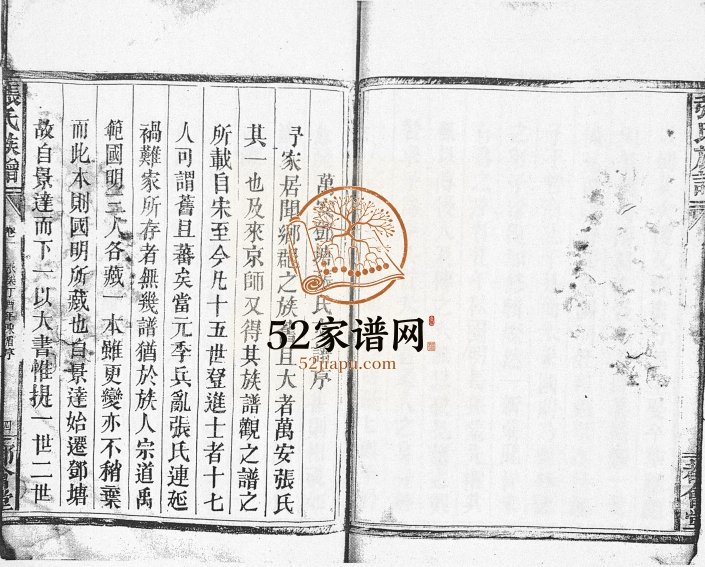 張氏族譜
萬塘張氏譜序
予家居聞鄉郡之族舊且大者萬安張氏
其一也及來京師又得其族譜觀之譜之
所載自宋至今凡十五世登進士者十七
人可謂舊且蕃矣當元季兵亂張氏連延
禍難家所存者無幾譜猶於族人宗道禹
範國明三人各藏一本雖更變亦不稍棄
而此本則國明所藏也自景達始遷鄧塘
故自景達而下一以大書惟提一世二世
張氏族譜
卷一
四
52家谱网
52jiapu.com